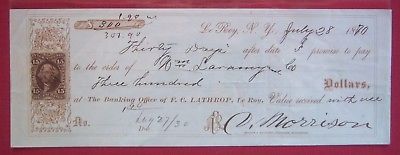 1.90
$ 300
301.90
Le Roy, N.Y., July 28 1870
Thirty Days after date I promise to pay
to the order of Wm Co
Three hundred Dollars,
at The Banking Office of F. C. LATHROP, Le Roy. Value received with use
No. 186 Aug 27/30 V. Morrison
15 15